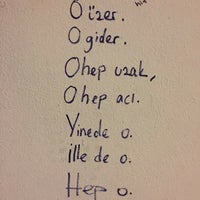 O üzer.
O gider.
O hep uzak,
O hep acı.
Yinede o.
İlle de o.
Hep o.